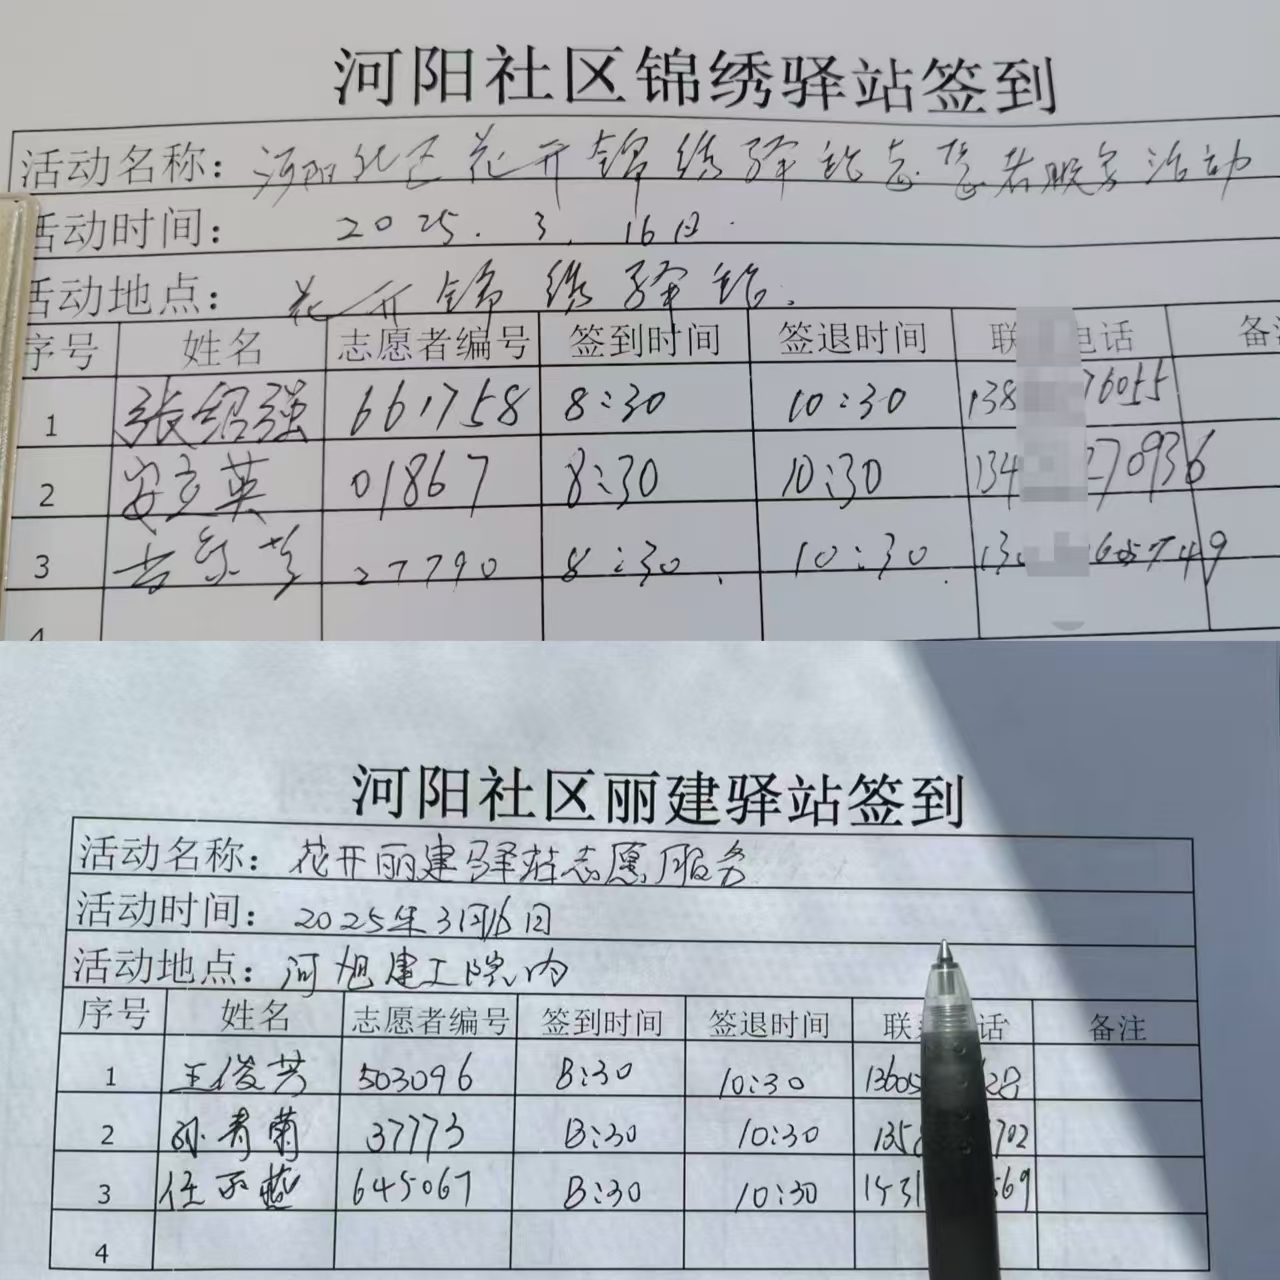 河阳社区锦绣驿站签到
活动名称：河阳社区花开锦绣驿站志愿者服务活动
活动时间： 2025.3.16日.
活动地点： 花开锦绣驿站.
序号 姓名 志愿者编号 签到时间 签退时间 联 电话 备注
1 张绍强 661758 8:30 10:30 138 76055
2 安立英 01867 8:30 10:30 134 270936
3 27790 8:30 10:30 130 1605749
4
河阳社区丽建驿站签到
活动名称：花开丽建驿站志愿服务
活动时间：2025年3月16日
活动地点：河旭建工院内
序号 姓名 志愿者编号 签到时间 签退时间 联 话 备注
1 王俊芳 503096 8:30 10:30 13605 28
2 孙青菊 37773 8:30 10:30 135 702
3 任 燕 645067 8:30 10:30 1531 569
4